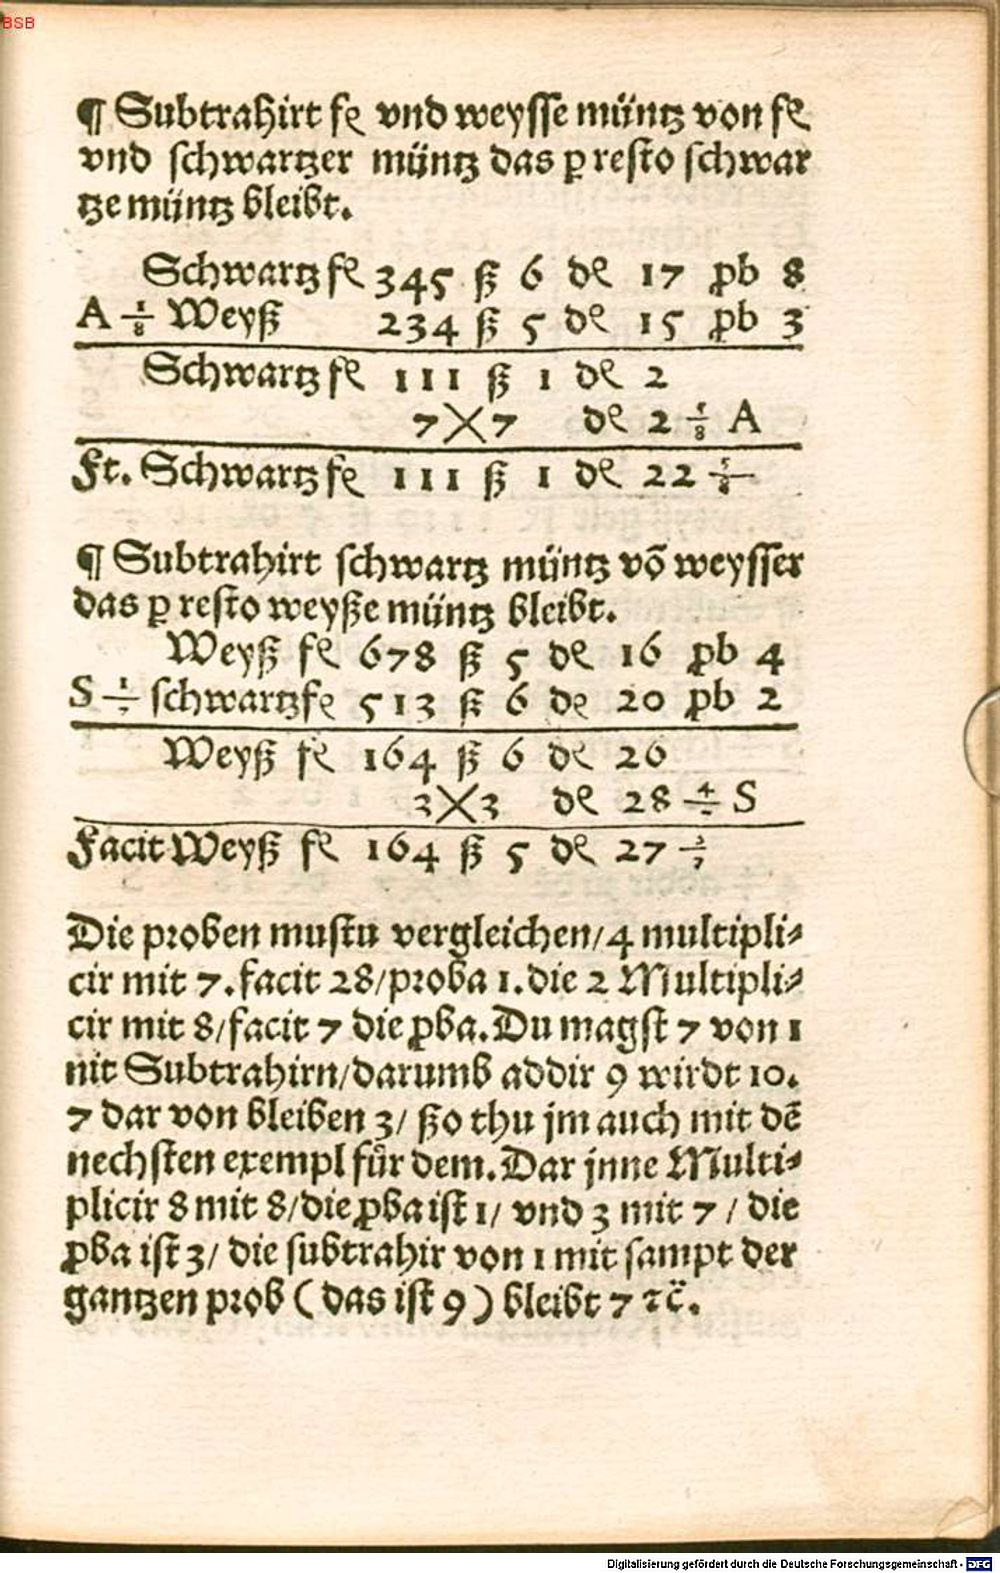 BSB
¶ Subtrahirt fl vnd weysse müntz von fl
vnd schwartzer müntz das p resto schwar
tze müntz bleibt.
Schwartz fl 345 ß 6 dl 17 pb 8
A 1/8 Weyß 234 ß 5 dl 15 pb 3
Schwartz fl 111 ß 1 dl 2
7 X 7 dl 2 5/8 A
Ft. Schwartz fl 111 ß 1 dl 22 5/8
¶ Subtrahirt schwartz müntz võ weysser
das p resto weyße müntz bleibt.
Weyß fl 678 ß 5 dl 16 pb 4
S schwartz fl 513 ß 6 dl 20 pb 2
Weyß fl 164 ß 6 dl 26
3 X 3 dl 28 S
Facit Weyß fl 164 ß 5 dl 27 2/7
Die proben mustu vergleichen/4 multipli⸗
cir mit 7. facit 28/proba 1. die 2 Multipli⸗
cir mit 8/facit 7 die pba. Du magst 7 von 1
nit Subtrahirn/darumb addir 9 wirdt 10.
7 dar von bleiben 3/ ßo thu jm auch mit dẽ
nechsten exempl fůr dem. Dar jnne Multi⸗
plicir 8 mit 8/die pba ist 1/ vnd 3 mit 7 / die
pba ist 3/ die subtrahir von 1 mit sampt der
gantzen prob ( das ist 9 ) bleibt 7 ⁊c̈.
Digitalisierung gefördert durch die Deutsche Forschungsgemeinschaft - DFG